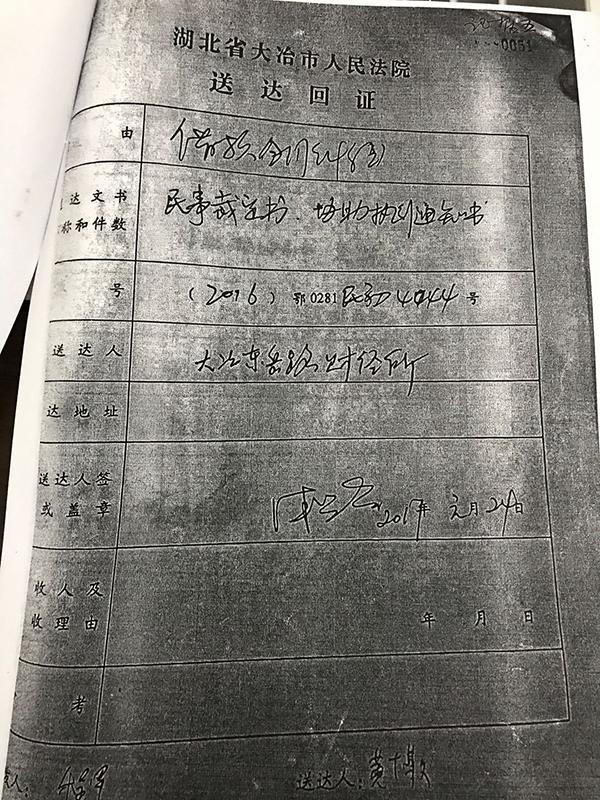 0051
湖北省大冶市人民法院
送达回证
由 借款合同纠纷
达文书
称和件数 民事裁定书、协助执行通知书
号 (2016)鄂0281民初4044号
送达人 大冶东岳路财经所
达地址
送达人签
或盖章 2017年元月24日
收人及
收理由 年 月 日
考
人: 送达人:黄